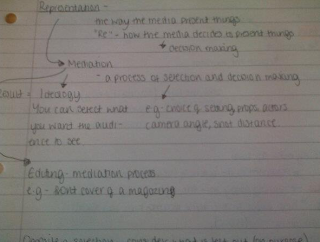 Representation -
the way the media present things.
"Re" - how the media decides to present things
decision making
Mediation
- a process of selection and decision making
Result = Ideology
You can select what e.g. choice of setting, props, actors
you want the audi- camera angle, shot distance
ence to see
Editing - mediation process
e.g - front cover of a magazine